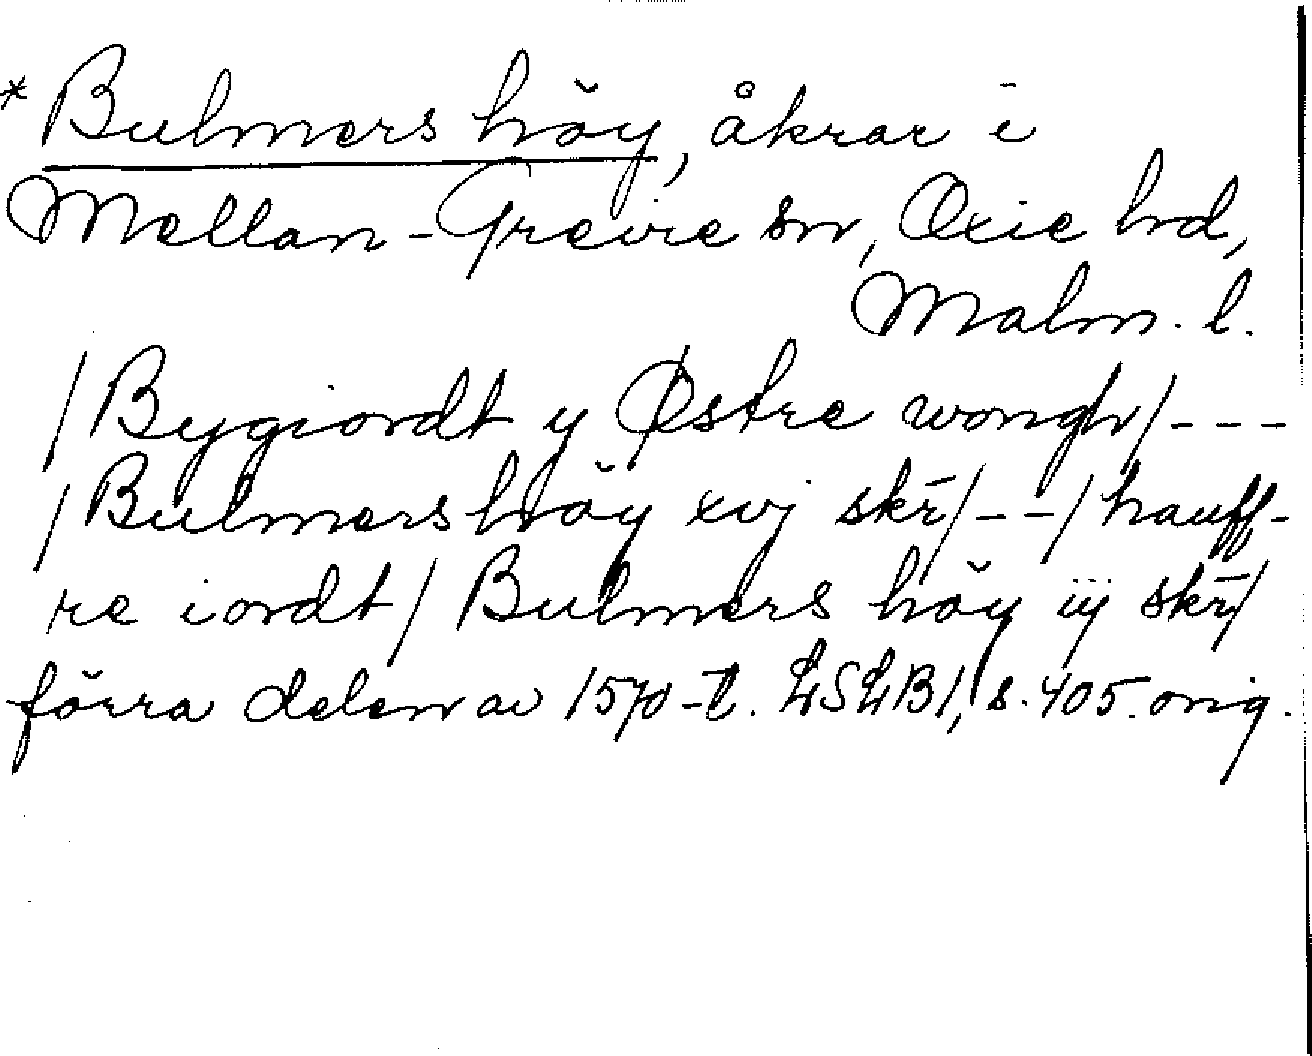 *Bulmers höy, åkrar i
Mellan-Grevie sn, Oxie hd,
Malm. l.
/Bygiordt y Østre wongh/---
/Bulmers höy xvj skr̄/--/hauff-
re iordt/ Bulmers höy iij skr̄/
förra delen av 1570-t. LSLB1, s. 405. orig.